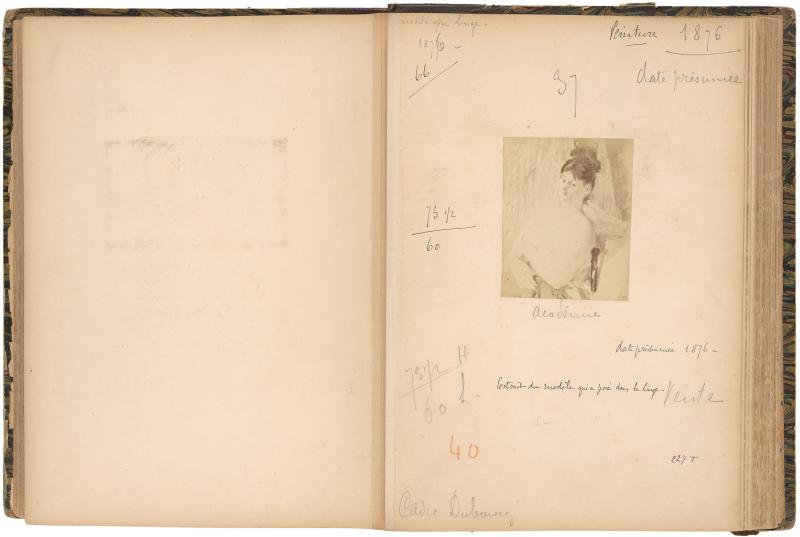 modèle du linge -
Peinture 1876
66
date présumée
37
73 1/2
60
académie
date présumée 1876 -
73 1/2 H
60 L -
Portrait du modèle qui a posé dans le linge. Vente
40
227 T
Cadre Dubourg